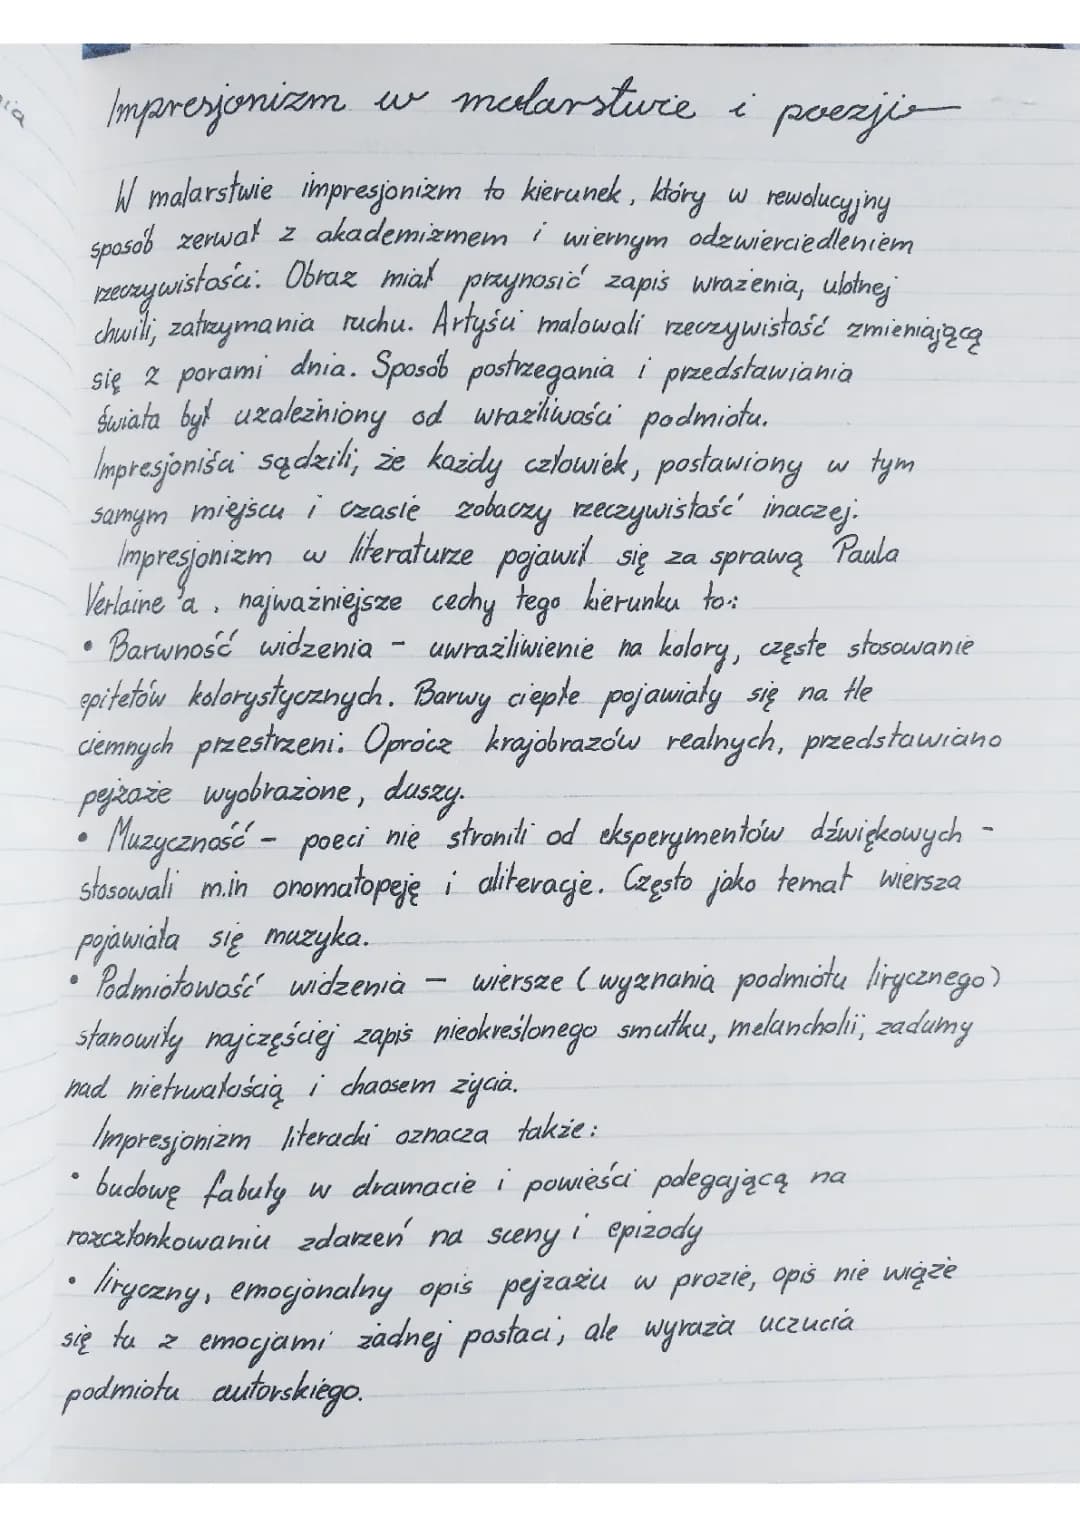 Impresjonizm w malarstwie i poezji
W malarstwie impresjonizm to kierunek, który w rewolucyjny
sposób zerwał z akademizmem i wiernym odzwierciedleniem
rzeczywistości. Obraz miał przynosić zapis wrażenia, ulotnej
chwili, zatrzymania ruchu. Artyści malowali rzeczywistość zmieniającą
się z porami dnia. Sposób postrzegania i przedstawiania
świata był uzależniony od wrażliwości podmiotu.
Impresjoniści sądzili, że każdy człowiek, postawiony w tym
samym miejscu i czasie zobaczy rzeczywistość inaczej.
Impresjonizm w literaturze pojawił się za sprawą Paula
Verlaine'a, najważniejsze cechy tego kierunku to:
• Barwność widzenia - uwrażliwienie na kolory, częste stosowanie
epitetów kolorystycznych. Barwy ciepłe pojawiały się na tle
ciemnych przestrzeni. Oprócz krajobrazów realnych, przedstawiano
pejzaże wyobrażone, duszy.
• Muzyczność - poeci nie stronili od eksperymentów dźwiękowych -
stosowali m.in onomatopeję i aliterację. Często jako temat wiersza
pojawiała się muzyka.
• Podmiotowość widzenia - wiersze (wyznania podmiotu lirycznego)
stanowiły najczęściej zapis nieokreślonego smutku, melancholii, zadumy
nad nietrwałością i chaosem życia.
Impresjonizm literacki oznacza także:
• budowę fabuły w dramacie i powieści polegającą na
rozczłonkowaniu zdarzeń na sceny i epizody
• liryczny, emocjonalny opis pejzażu w prozie, opis nie wiąże
się tu z emocjami żadnej postaci, ale wyraża uczucia
podmiotu autorskiego.